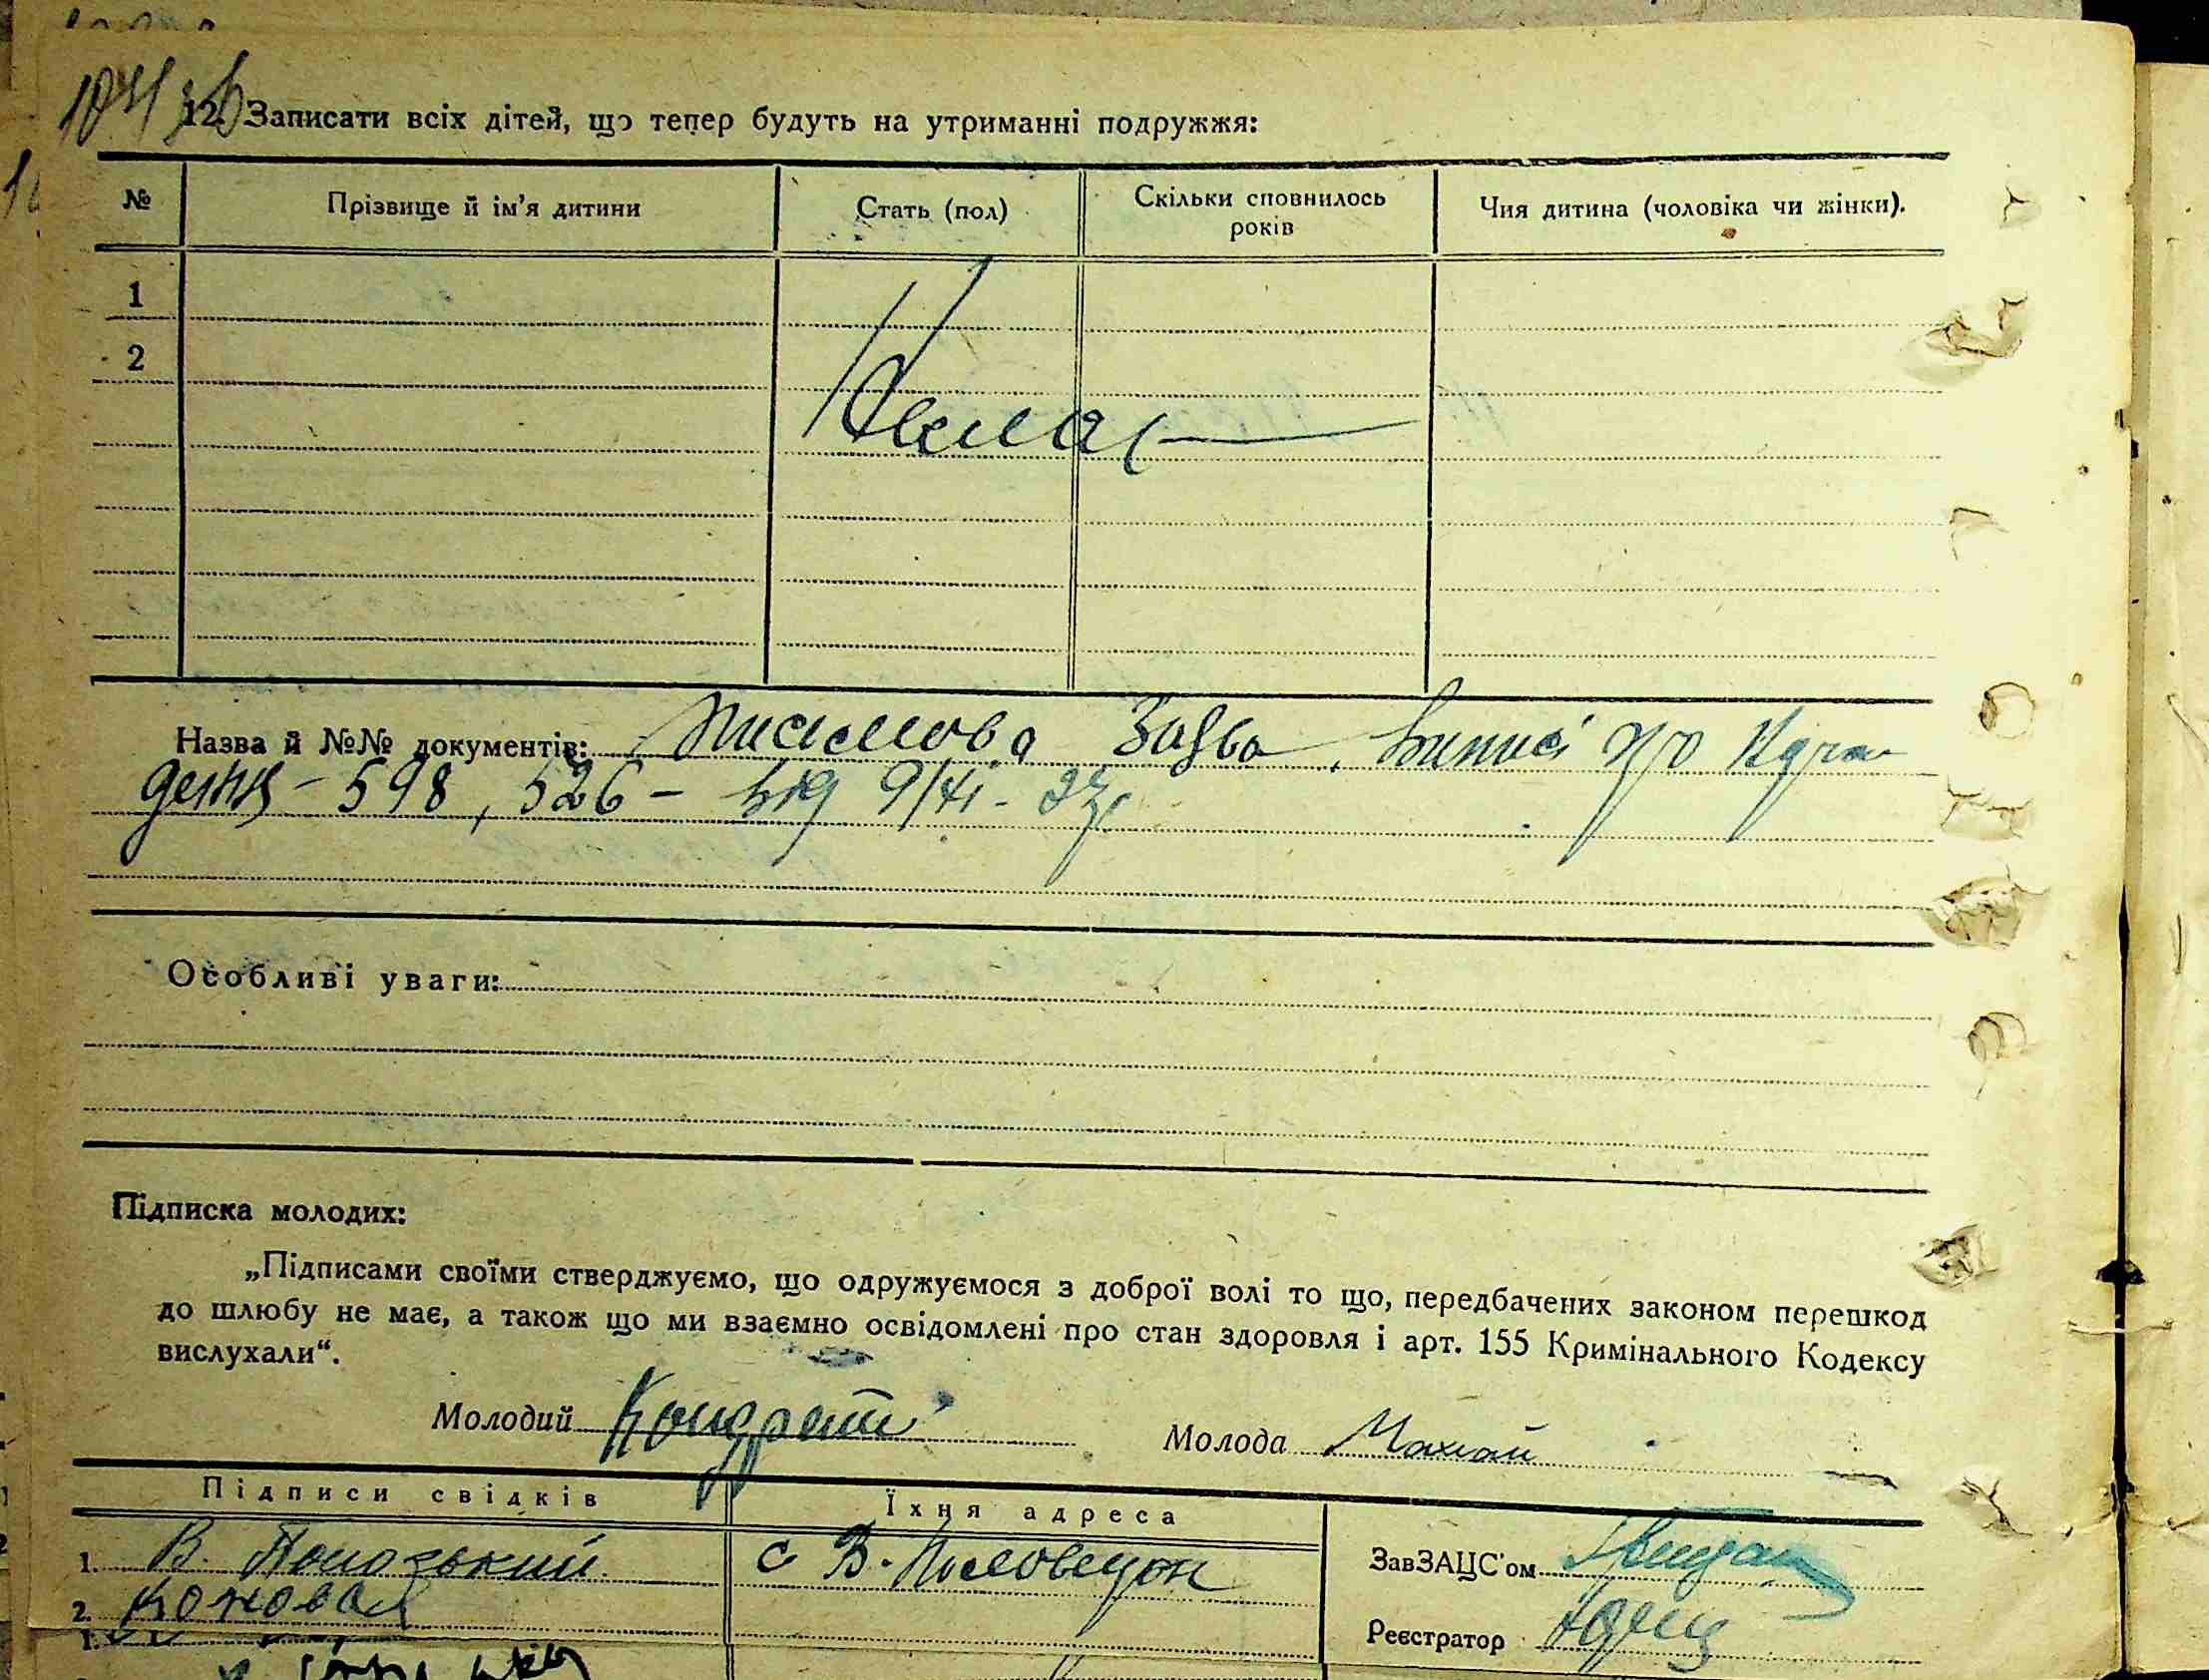 12. Записати всіх дітей, що тепер будуть на утриманні подружжя:
№ Прізвище й ім'я дитини Стать (пол) Скільки сповнилось років Чия дитина (чоловіка чи жінки).
1
2
Немає
Назва й №№ документів: Письмова Заява, Виписі про
598, 526 – від
Особливі уваги:
Підписка молодих:
„Підписами своїми стверджуємо, що одружуємося з доброї волі то що, передбачених законом перешкод
до шлюбу не має, а також що ми взаємно освідомлені про стан здоровля і арт. 155 Кримінального Кодексу
вислухали“.
Молодий Кондрат Молода
Підписи свідків Їхня адреса
1. В. с В-Половецьк ЗавЗАЦС'ом
2. Коновал Реєстратор
1.